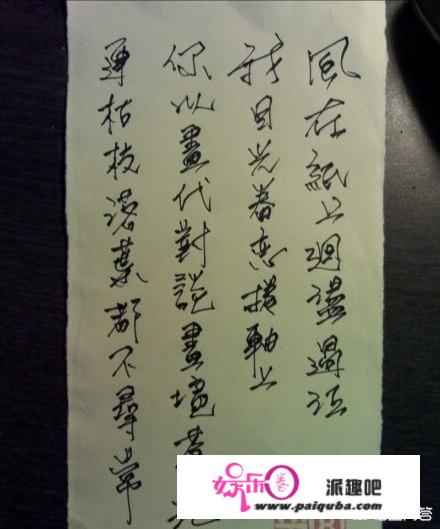 風在紙上迴盪過往
我目光眷戀橫軸上
你以畫代對說畫境
連枯枝落葉都不尋常
娱乐卷 派趣吧
www.paiquba.com